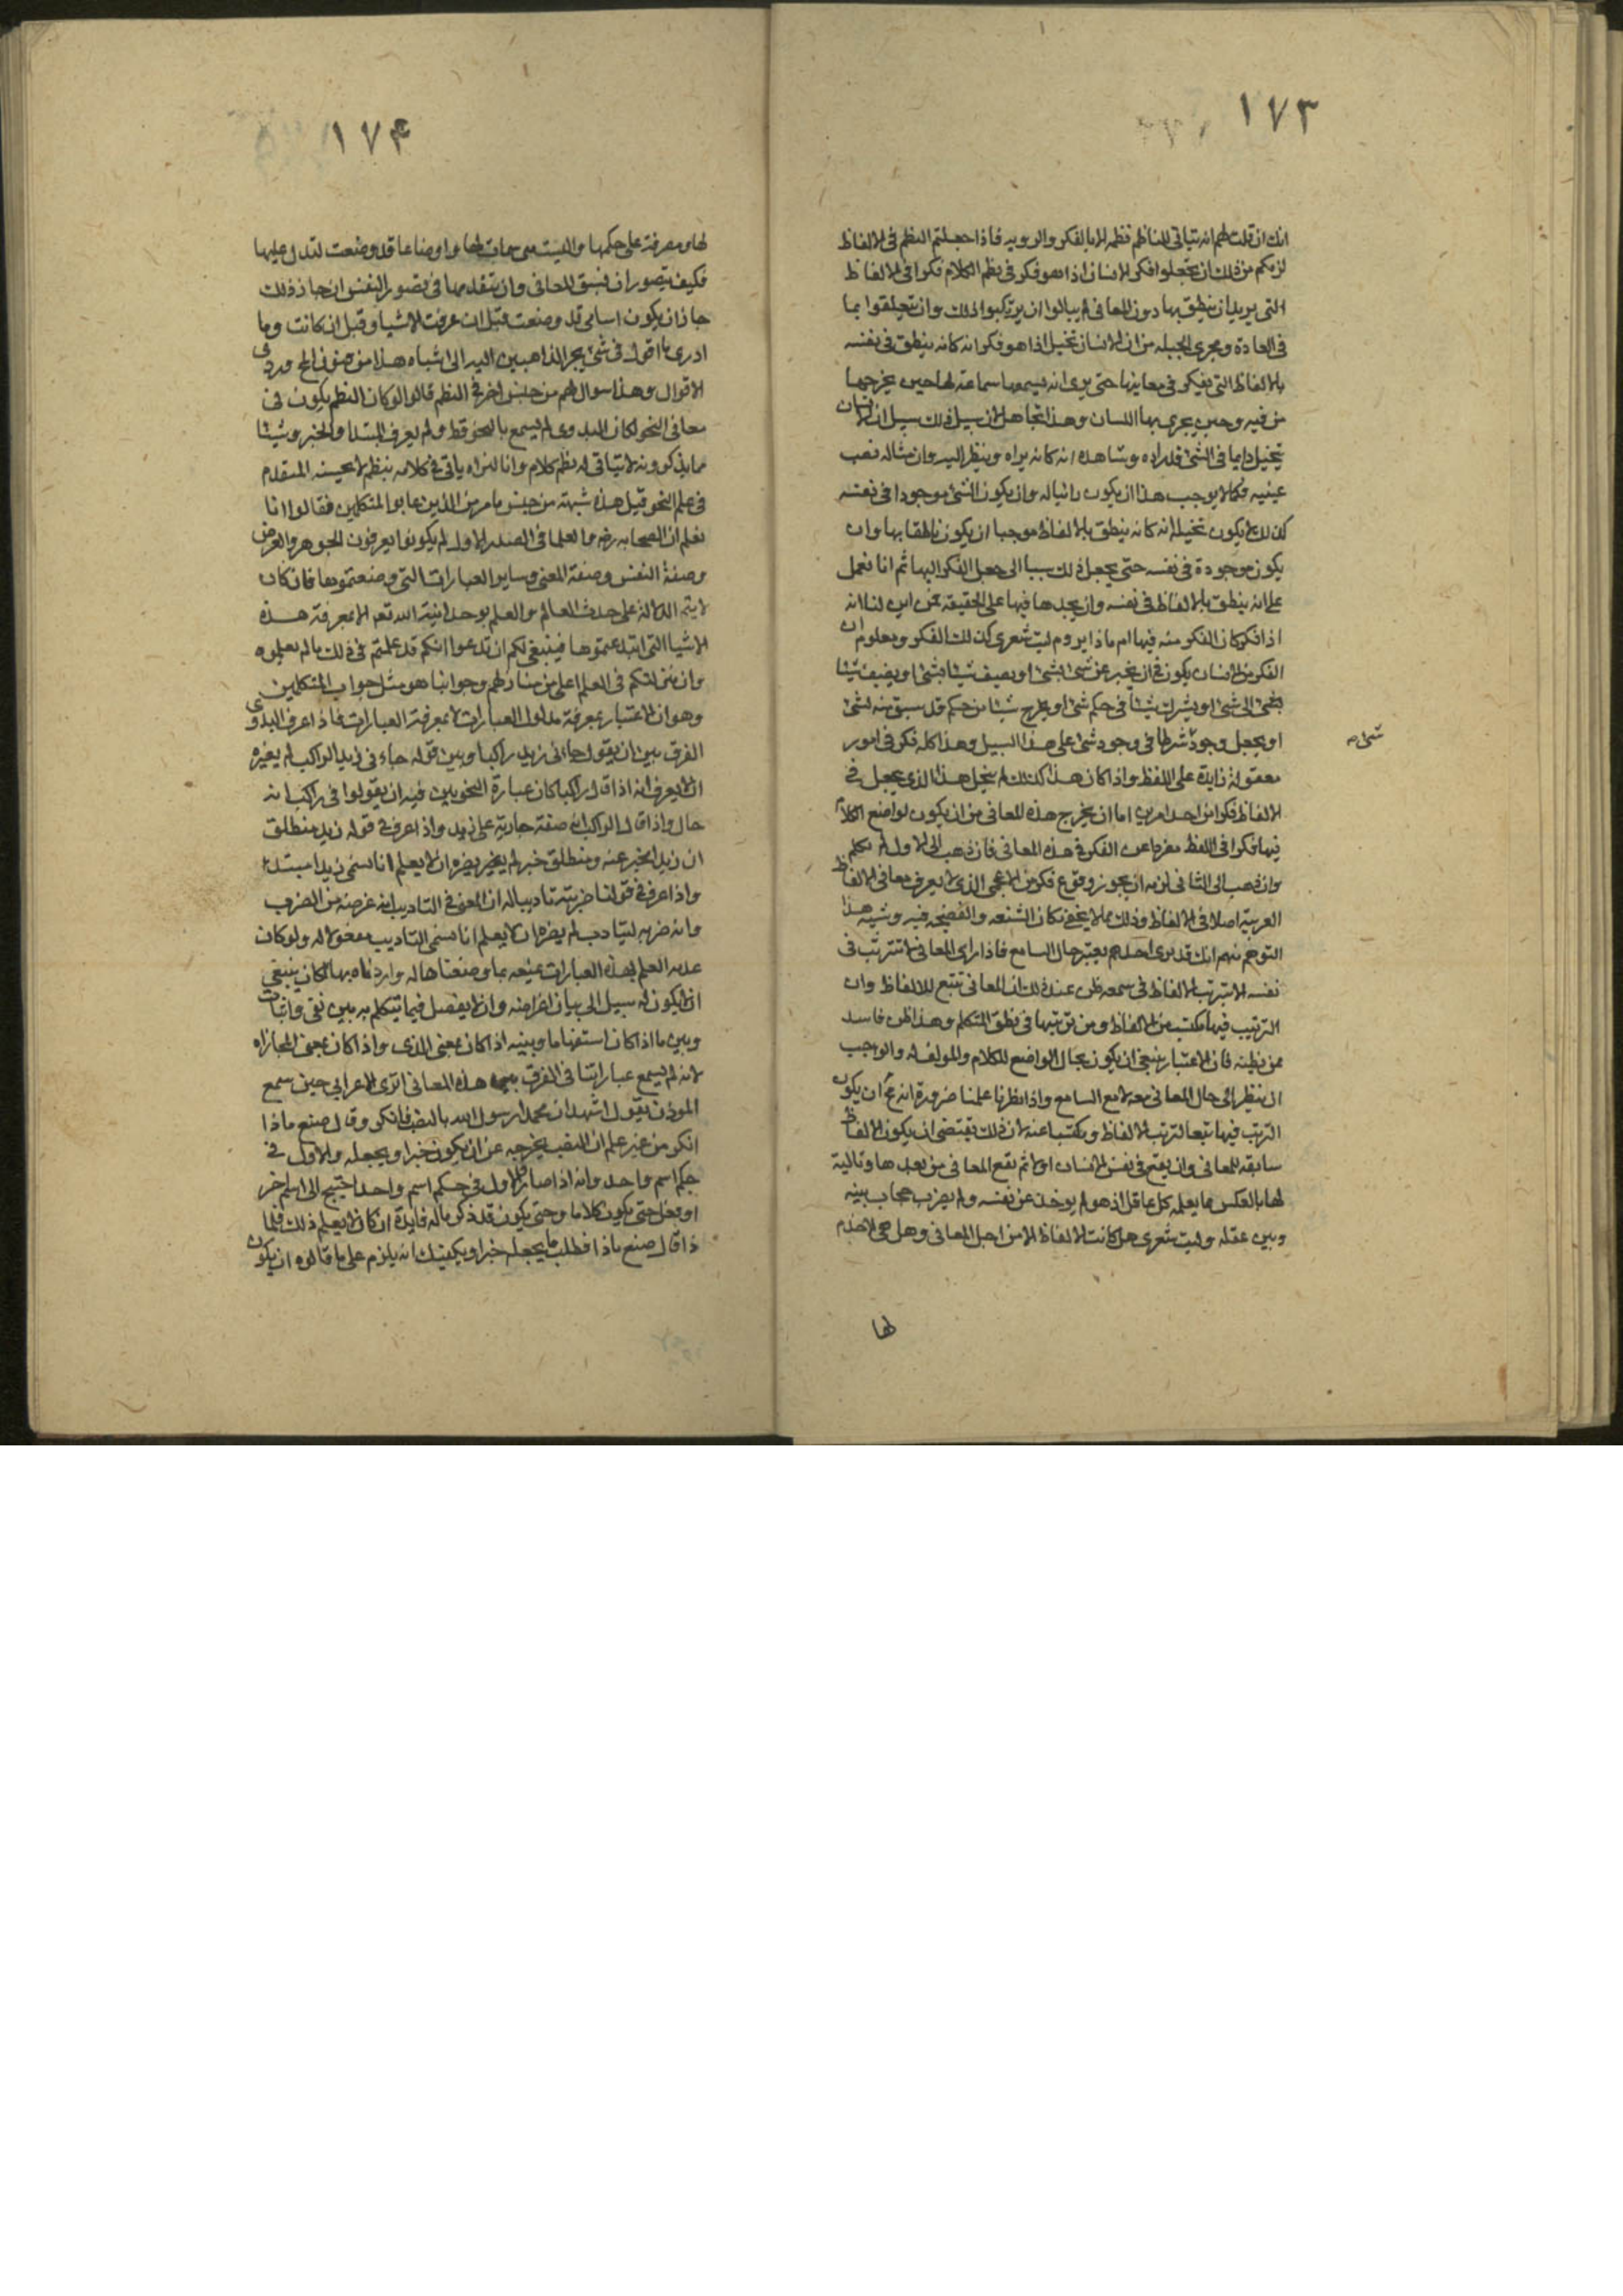 ١٧٣
انك ان قلت لهم انه يتاتى للناظم نظمه الا بالفكر والرويه فاذا جعلتم النظم فى الالفاظ
لزمكم من ذلك ان تجعلوا فكر الانسان اذا هو فكر فى نظم الكلام فكرا فى الالفاظ
التى يريد ان ينطق بها دون المعانى لم يبالوا ان يرتكبوا ذلك وان يتعلقوا بما
فى العادة ومجرى الجبله من ان الانسان تخيل اذا هو فكر انه كانه ينطق فى نفسه
بالالفاظ التى يفكر فى معاينها حتى يرى انه يسمعها سماعه لها حين يخرجها
من فيه وحين يجرى بها اللسان وهذا تجاهل لان سبيل ذلك سبيل ان الانسان
يتخيل دايما فى الشئ قد راه وشاهده انه كانه يراه وينظر اليه وان مثاله نصب
عينيه فكما لا يوجب هذا ان يكون رائيا له وان يكون الشئ موجودا فى نفسه
كذلك لا يكون تخيله انه كانه ينطق بالالفاظ موجبا ان يكون ناطقا بها وان
يكون موجودة فى نفسه حتى يجعل ذلك سببا الى جعل الفكر اليها ثم انا نعمل
على انه ينطق بالالفاظ فى نفسه وان يجدها فيها على الحقيقه فمن اين لنا انه
اذا فكر كان الفكر منه فيها ام ماذا يروم ليت شعرى كذلك الفكر ومعلوم ان
الفكر من الانسان يكون فى ان يخبر عن شئ بشئ او يصيف شيئا بشئ او يضيف شيئا
بشئ الى شئ او يشرك شيئا فى حكم شئ او يخرج شيئا من حكم قد سبق منه لشئ
او يجعل وجود شرطا فى وجود شئ على هذا السبيل وهذا كله فكر فى امور
شئ صح
معقولة زايدة على اللفظ واذا كان هذا كذلك لم يخل هذا الذى يجعل فى
الالفاظ فكرا من احد امرين اما ان يخرج هذه المعانى من ان يكون لواضع الكلام
فيها فكر فى اللفظ مفردا عن الفكر فى هذه المعانى فان ذهب الى الاول لم يكلم
وان ذهب الى الثانى لزمه ان يجوز وقوع فكر من الاعجمى الذى لا يعرف معانى الالفاظ
العربية اصلا فى الالفاظ وذلك مما لا يخفى مكان الشنعه والفضيحه فيه وشبيه هذا
التوهم منهم انك قد ترى احدهم يعتبر حال السامع فاذا راى المعانى لا تترتب فى
نفسه الا بترتب الالفاظ فى سمعه ظن عند ذلك ان المعانى تتبع للالفاظ وان
الترتيب فيها مكتسب من الالفاظ ومن ترتيبها فى نطق المتكلم وهذا ظن فاسد
ممن نظنه فان الاعتبار ينبغى ان يكون بحال الواضع للكلام والمولف له والواجب
ان ينظر الى حال المعانى معه لا مع السامع واذا نظرنا علمنا ضرورة انه مح ان يكون
الترتب فيها تبعا لترتب الالفاظ ومكتسبا عنه لان ذلك يقتضى ان يكون الالفاظ
سابقه للمعانى وان يقع فى نفس الانسان اولا ثم تقع المعانى من بعدها وتالية
لها بالعكس مما يعلمه كل عاقل اذ هو لم يوخذ عن نفسه ولم يضرب حجاب بينه
وبين عقله وليت شعرى هل كانت الالفاظ الا من اجل المعانى وهل هى الا خدم
لها
١٧٤
لها ومصرفة على حكمها واليست هى سمات لها واوضاعا قد وضعت لتدل عليها
فكيف يتصور ان تسبق المعانى وان يتقدمها فى تصور النفس ان جاز ذلك
جاز ان يكون اسامى قد وضعت قبل ان عرفت الاشيا وقبل ان كانت وما
ادرى ما اقول فى شئ يجر الذاهبين اليه الى اشباه هذا من فنون المح وردى
الاقوال وهذا سوال لهم من جنس اخر فى النظم قالوا لو كان النظم يكون فى
معانى النحو لكان البدوى لم يسمع بالنحو قط ولم يعرف المبتدا والخبر وشيئا
مما يذكرونه لا يتاتى له نظم كلام وانا لنراه ياتى فى كلامه بنظم لا يحسنه المتقدم
فى علم النحو قيل هذه شبهة من جنس ما عرض الذين عابوا المتكلمين فقالوا انا
نعلم ان الصحابه رضه والعلما فى الصدر الاول لم يكونوا يعرفون الجوهر والعرض
وصفة النفس وصفة المعنى وساير العبارات التى وضعتموها فان كان
لا يتم الدلالة على حدث العالم والعلم بوحدانية الله تعه الا بمعرفة هذه
الاشيا التى ابتدعتموها فينبغى لكم ان تدعوا انكم قد علمتم فى ذلك ما لم يعلموه
وان منزلتكم فى العلم اعلى من منازلهم وجوابنا هو مثل جواب المتكلمين
وهو ان الاعتبار بمعرفة مدلول العبارات لا بمعرفة العبارات فاذا عرف البدوى
الفرق بين ان يقول جاءنى زيد راكبا وبين قوله جاءنى زيد الراكب لم يضره
ان لا يعرف انه اذا قال راكبا كان عبارة النحويين فيه ان يقولوا فى راكب انه
حال واذا قال الراكب انه صفة جارية على زيد واذا عرف فى قوله زيد منطلق
ان زيدا مخبر عنه ومنطلق خبر لم يضره ان لا يعلم انا نسمى زيدا مبتدا
واذا عرف فى قولنا ضربته تاديبا له ان المعنى فى التاديب انه غرضه من الضرب
وانه ضربه ليتادب لم يضره ان لا يعلم انا نسمى التاديب مفعولا له ولو كان
عدمه العلم بهذه العبارات يمنعه بما وضعناها له واردناه بها لكان ينبغى
ان لا يكون له سبيل الى بيان اغراضه وان لا يفصل فيما يتكلم به بين نفى واثبات
وبين ما اذا كان استفهاما وبينه اذا كان بمعنى الذى واذا كان بمعنى المجازاه
لانه لم يسمع عباراتنا فى الفرق بين هذه المعانى اترى الاعرابى حين سمع
الموذن يقول اشهد ان محمدا رسول الله بالنصب فانكر وقال صنع ماذا
انكر من غير علم ان النصب يخرجه عن ان يكون خبرا ويجعله والاول فى
حكم اسم واحد وانه اذا صار والاول فى حكم اسم واحد احتيج الى اسم اخر
او فعل حتى يكون كلاما وحتى يكون قد ذكر ماله فايدة ان كان لا يعلم ذلك فلما
ذا قال صنع ماذا فطلب ما يجعله خبرا ويكفيك انه يلزم على ما قالوه ان يكون